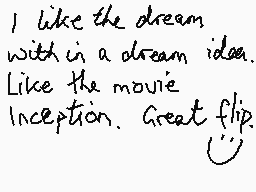 I like the dream
with in a dream idea.
Like the movie
Inception. Great flip.